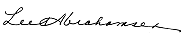 Lee Abrahamsen